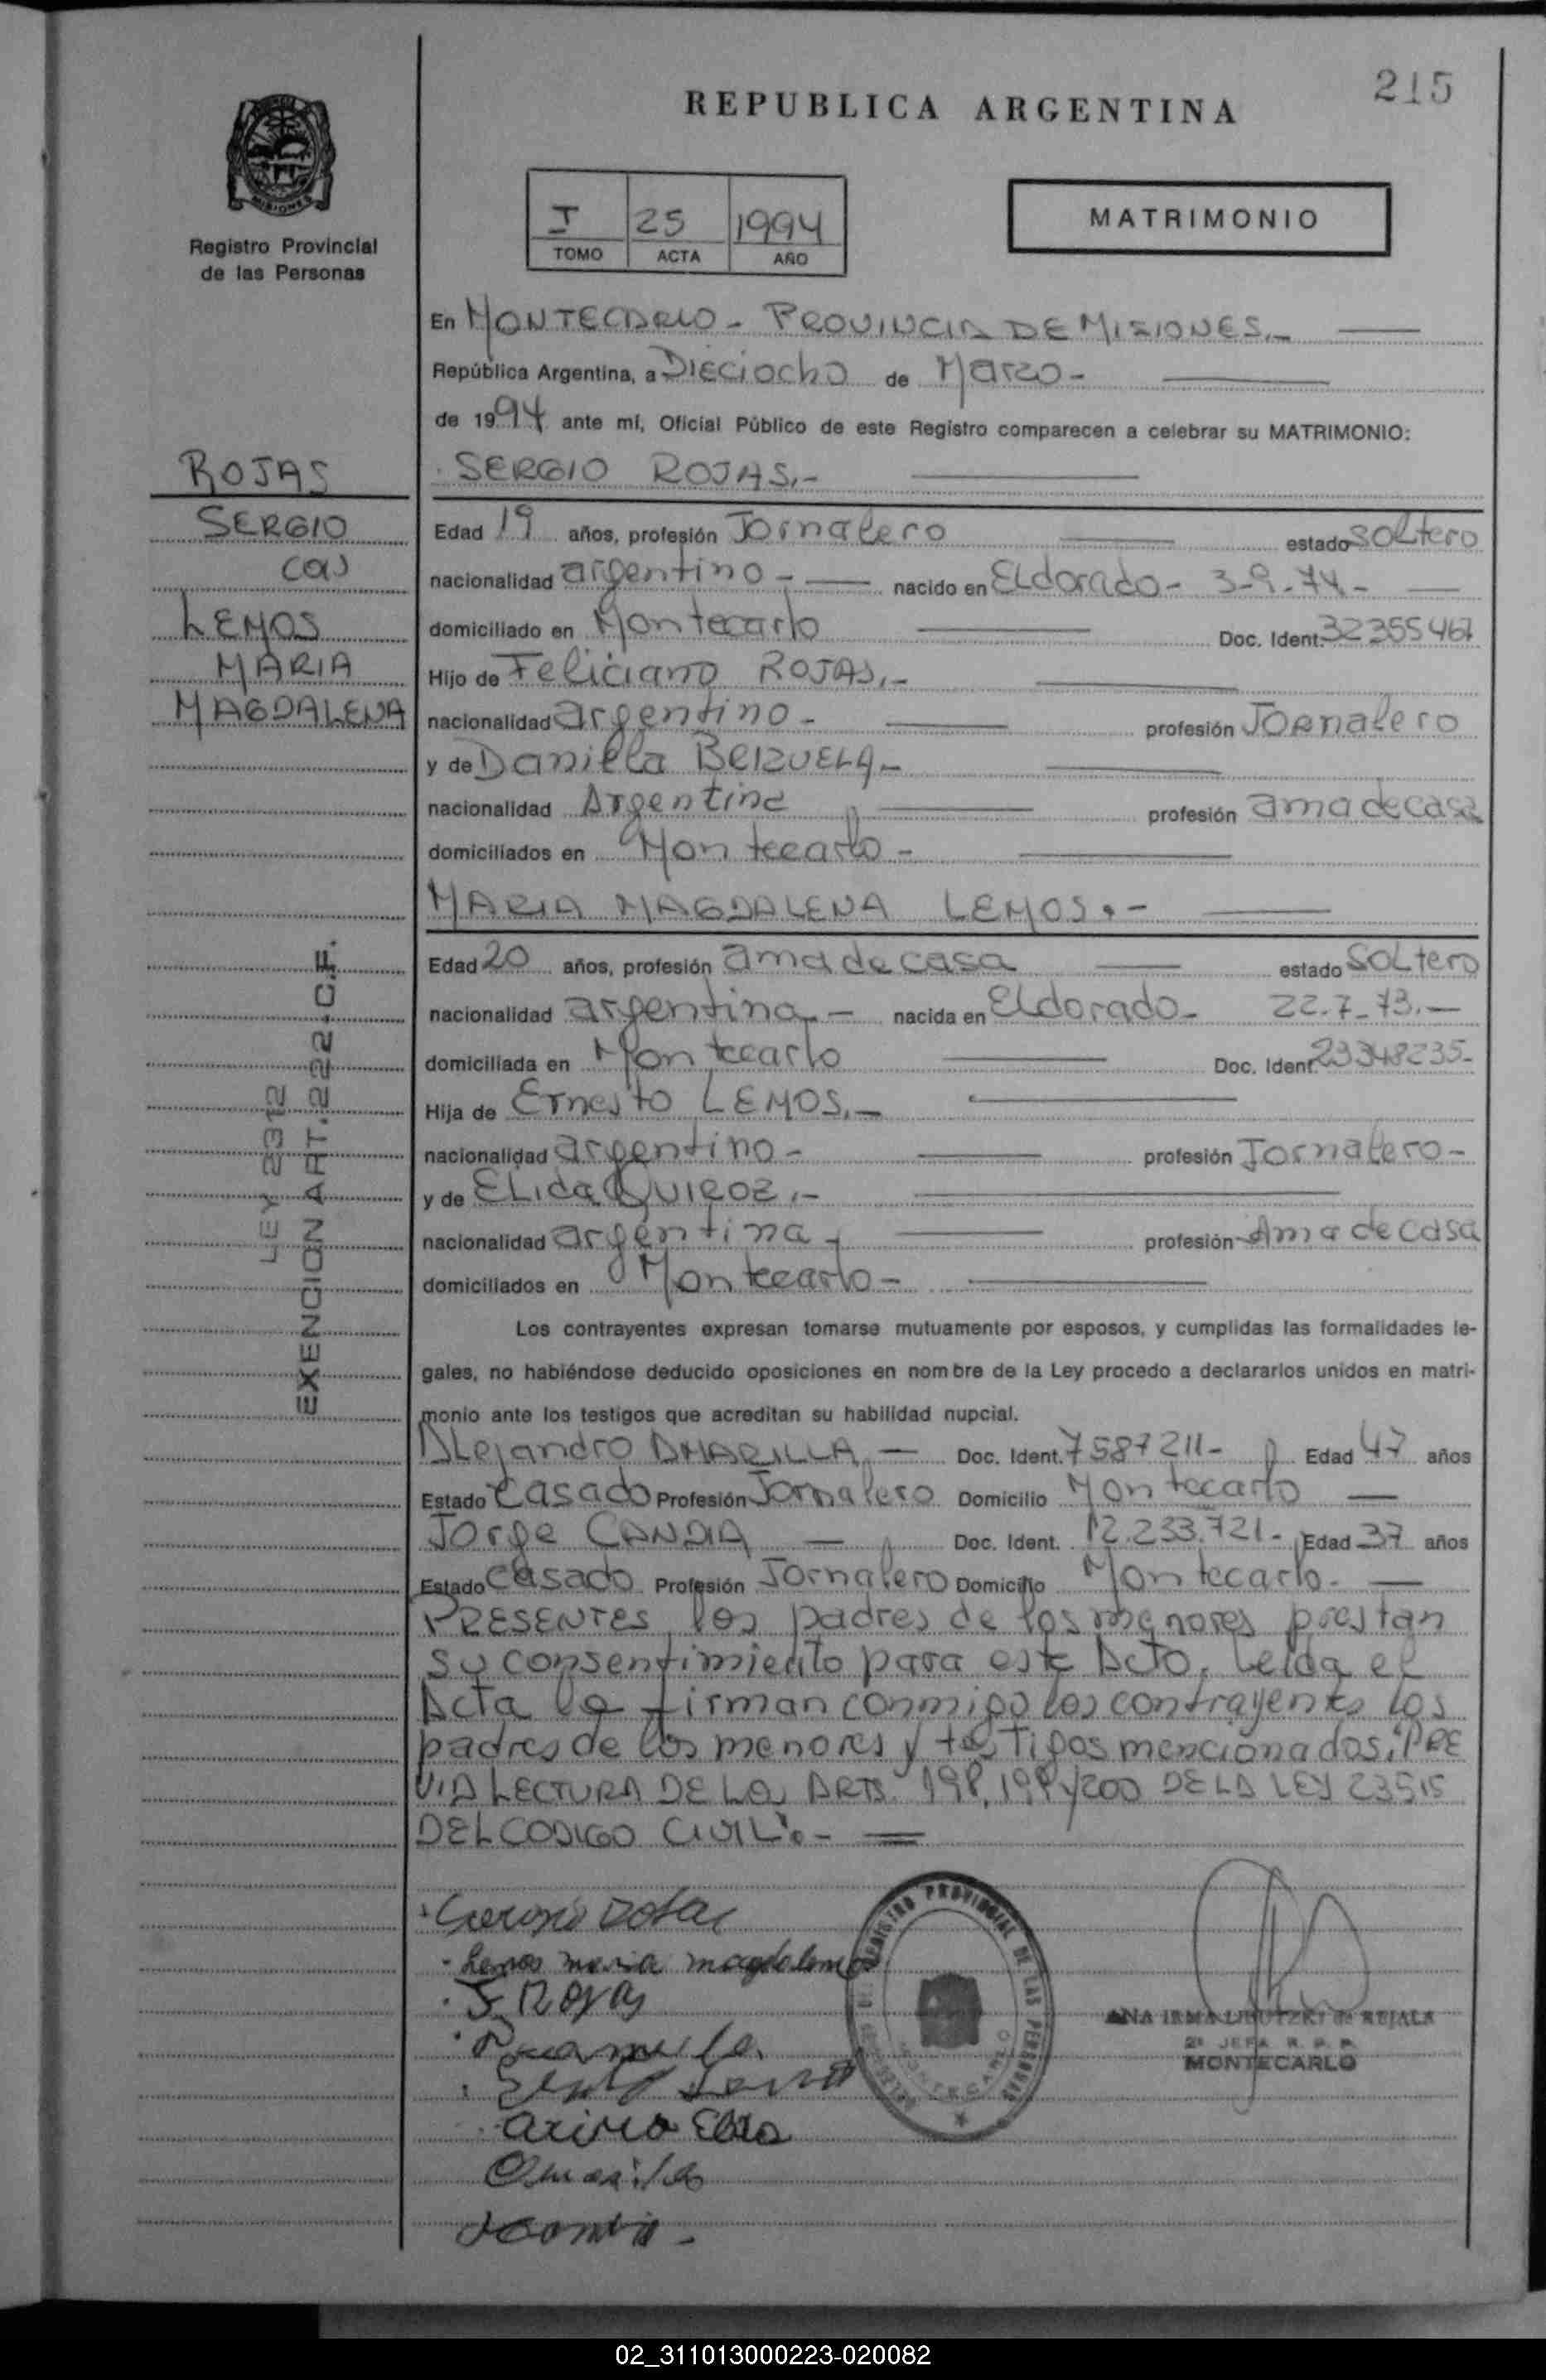 215
REPUBLICA ARGENTINA
MISIONES
Registro Provincial
de las Personas
I 25 1994
TOMO ACTA AÑO
MATRIMONIO
En MONTECARLO - PROVINCIA DE MISIONES.-
República Argentina, a Dieciocho de Marzo-
de 1994 ante mí, Oficial Público de este Registro comparecen a celebrar su MATRIMONIO:
ROJAS
SERGIO
con
LEMOS
MARIA
MAGDALENA
LEY 2312
EXENCION ART. 222 - C.F.
SERGIO ROJAS.-
Edad 19 años, profesión Jornalero estado soltero
nacionalidad argentino - nacido en Eldorado - 3-9-74.-
domiciliado en Montecarlo Doc. Ident. 32355467
Hijo de Feliciano ROJAS.-
nacionalidad argentino - profesión Jornalero
y de Daniela BRIZUELA.-
nacionalidad Argentina profesión ama de casa
domiciliados en Montecarlo -
MARIA MAGDALENA LEMOS.-
Edad 20 años, profesión ama de casa estado soltero
nacionalidad argentina - nacida en Eldorado - 22-7-73.-
domiciliada en Montecarlo Doc. Ident. 23348235-
Hija de Ernesto LEMOS.-
nacionalidad argentino - profesión Jornalero -
y de Elida QUIROZ.-
nacionalidad argentina - profesión Ama de casa
domiciliados en Montecarlo -
Los contrayentes expresan tomarse mutuamente por esposos, y cumplidas las formalidades le-
gales, no habiéndose deducido oposiciones en nombre de la Ley procedo a declararlos unidos en matri-
monio ante los testigos que acreditan su habilidad nupcial.
Alejandro AMARILLA.- Doc. Ident. 7587211- Edad 47 años
Estado Casado Profesión Jornalero Domicilio Montecarlo
Jorge CANDIA - Doc. Ident. 12.233.721- Edad 37 años
Estado Casado Profesión Jornalero Domicilio Montecarlo.
PRESENTES los padres de los menores prestan
su consentimiento para este Acto, Leida el
Acta la firman conmigo los contrayentes los
padres de los menores y testigos mencionados. "PRE
VIA LECTURA DE LOS ARTS. 198, 199 y 200 DE LA LEY 23515
DEL CODIGO CIVIL".-
Lemos maria magdalena
REGISTRO PROVINCIAL DE LAS PERSONAS
MONTECARLO
ANA IRMA de REJALA
2ª JEFA R. P. P.
MONTECARLO
02_311013000223-020082